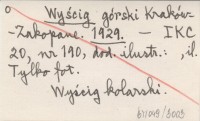 Wyścig górski Kraków-
-Zakopane. 1929. — IKC
20, nr 190, dod. ilustr.: , il.
Tylko fot.
Wyścig kolarski.